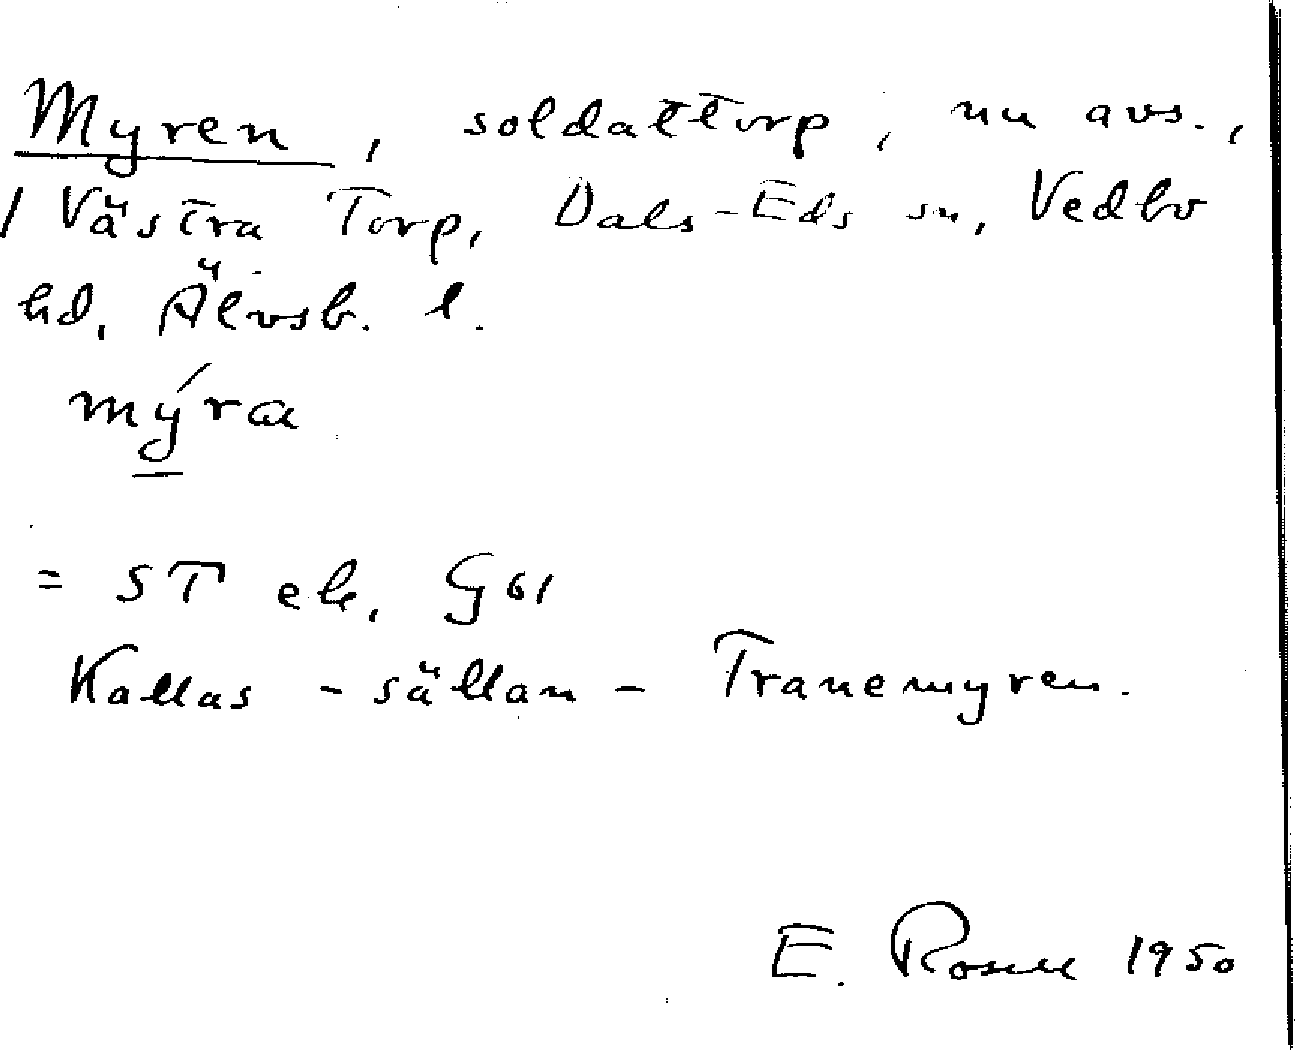 Myren, soldattorp, nu avs.,
/ Västra Torp, Dals-Eds sn, Vedbo
hd, Älvsb. l.
mýra
= ST ek. G 61
Kallas - sällan - Tranemyren.
E. Rosell 1950